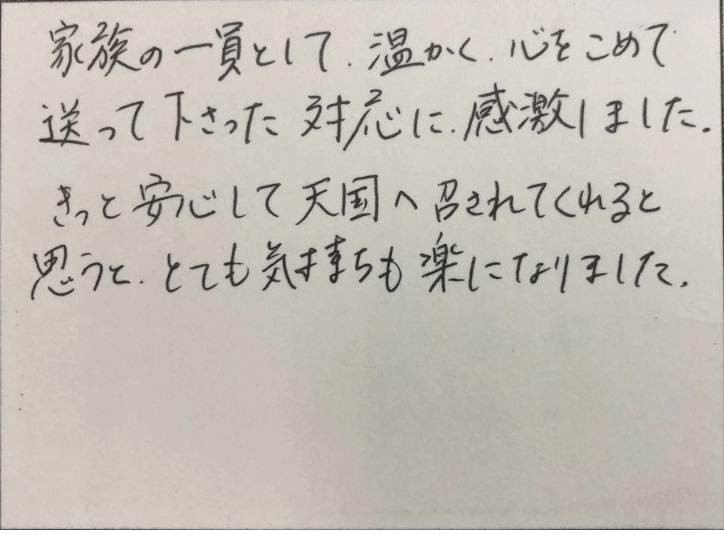 家族の一員として、温かく、心をこめて
送って下さった対応に、感激しました。
きっと安心して天国へ召されてくれると
思うと、とても気持ちも楽になりました。